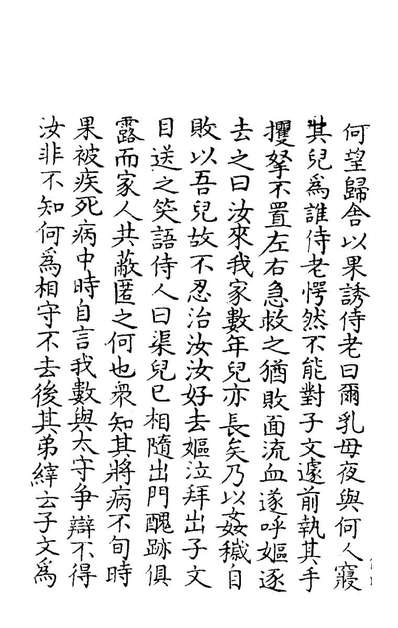 何望歸舍以果誘侍老曰爾乳母夜與何人寢
其兒爲誰侍老愕然不能對子文遽前執其手
攫拏不置左右急救之猶敗面流血遂呼嫗逐
去之曰汝來我家數年兒亦長矣乃以姦穢自
敗以吾兒故不忍治汝汝好去嫗泣拜出子文
目送之笑語侍人曰渠兒已相隨出門醜跡俱
露而家人共蔽匿之何也衆知其將病不旬時
果被疾死病中時自言我數與太守争辯不得
汝非不知何爲相守不去後其弟縡云子文爲